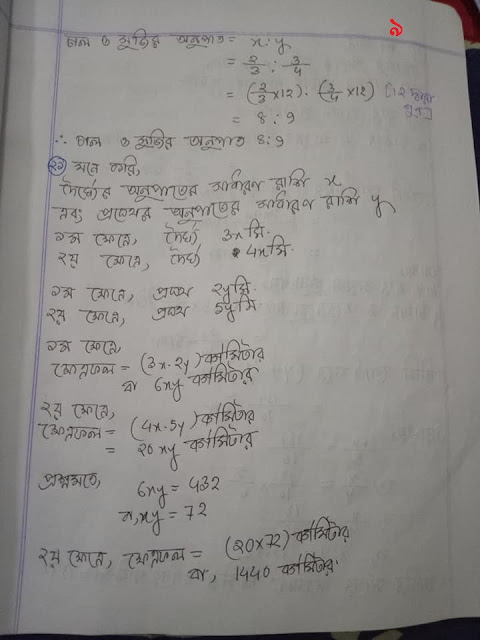 ৯
চাল ও সুজির অনুপাত = x:y
= 2/3 : 3/4
= (2/3 ×12) : (3/4 ×12)
= 8:9
∴ চাল ও সুজির অনুপাত 8:9
মনে করি,
দৈর্ঘ্যের অনুপাতের সাধারণ রাশি x
এবং প্রস্থের অনুপাতের সাধারণ রাশি y
১ম ক্ষেত্রে, দৈর্ঘ্য 3x মি.
২য় ক্ষেত্রে, দৈর্ঘ্য 4x মি.
১ম ক্ষেত্রে, প্রস্থ 2y মি.
২য় ক্ষেত্রে, প্রস্থ 5y মি
১ম ক্ষেত্রে,
ক্ষেত্রফল = (3x·2y) বর্গমিটার
বা 6xy বর্গমিটার
২য় ক্ষেত্রে,
ক্ষেত্রফল = (4x·5y) বর্গমিটার
= 20xy বর্গমিটার
প্রশ্নমতে,
6xy = 432
বা, xy = 72
২য় ক্ষেত্রে, ক্ষেত্রফল = (20×72) বর্গমিটার
বা, 1440 বর্গমিটার.